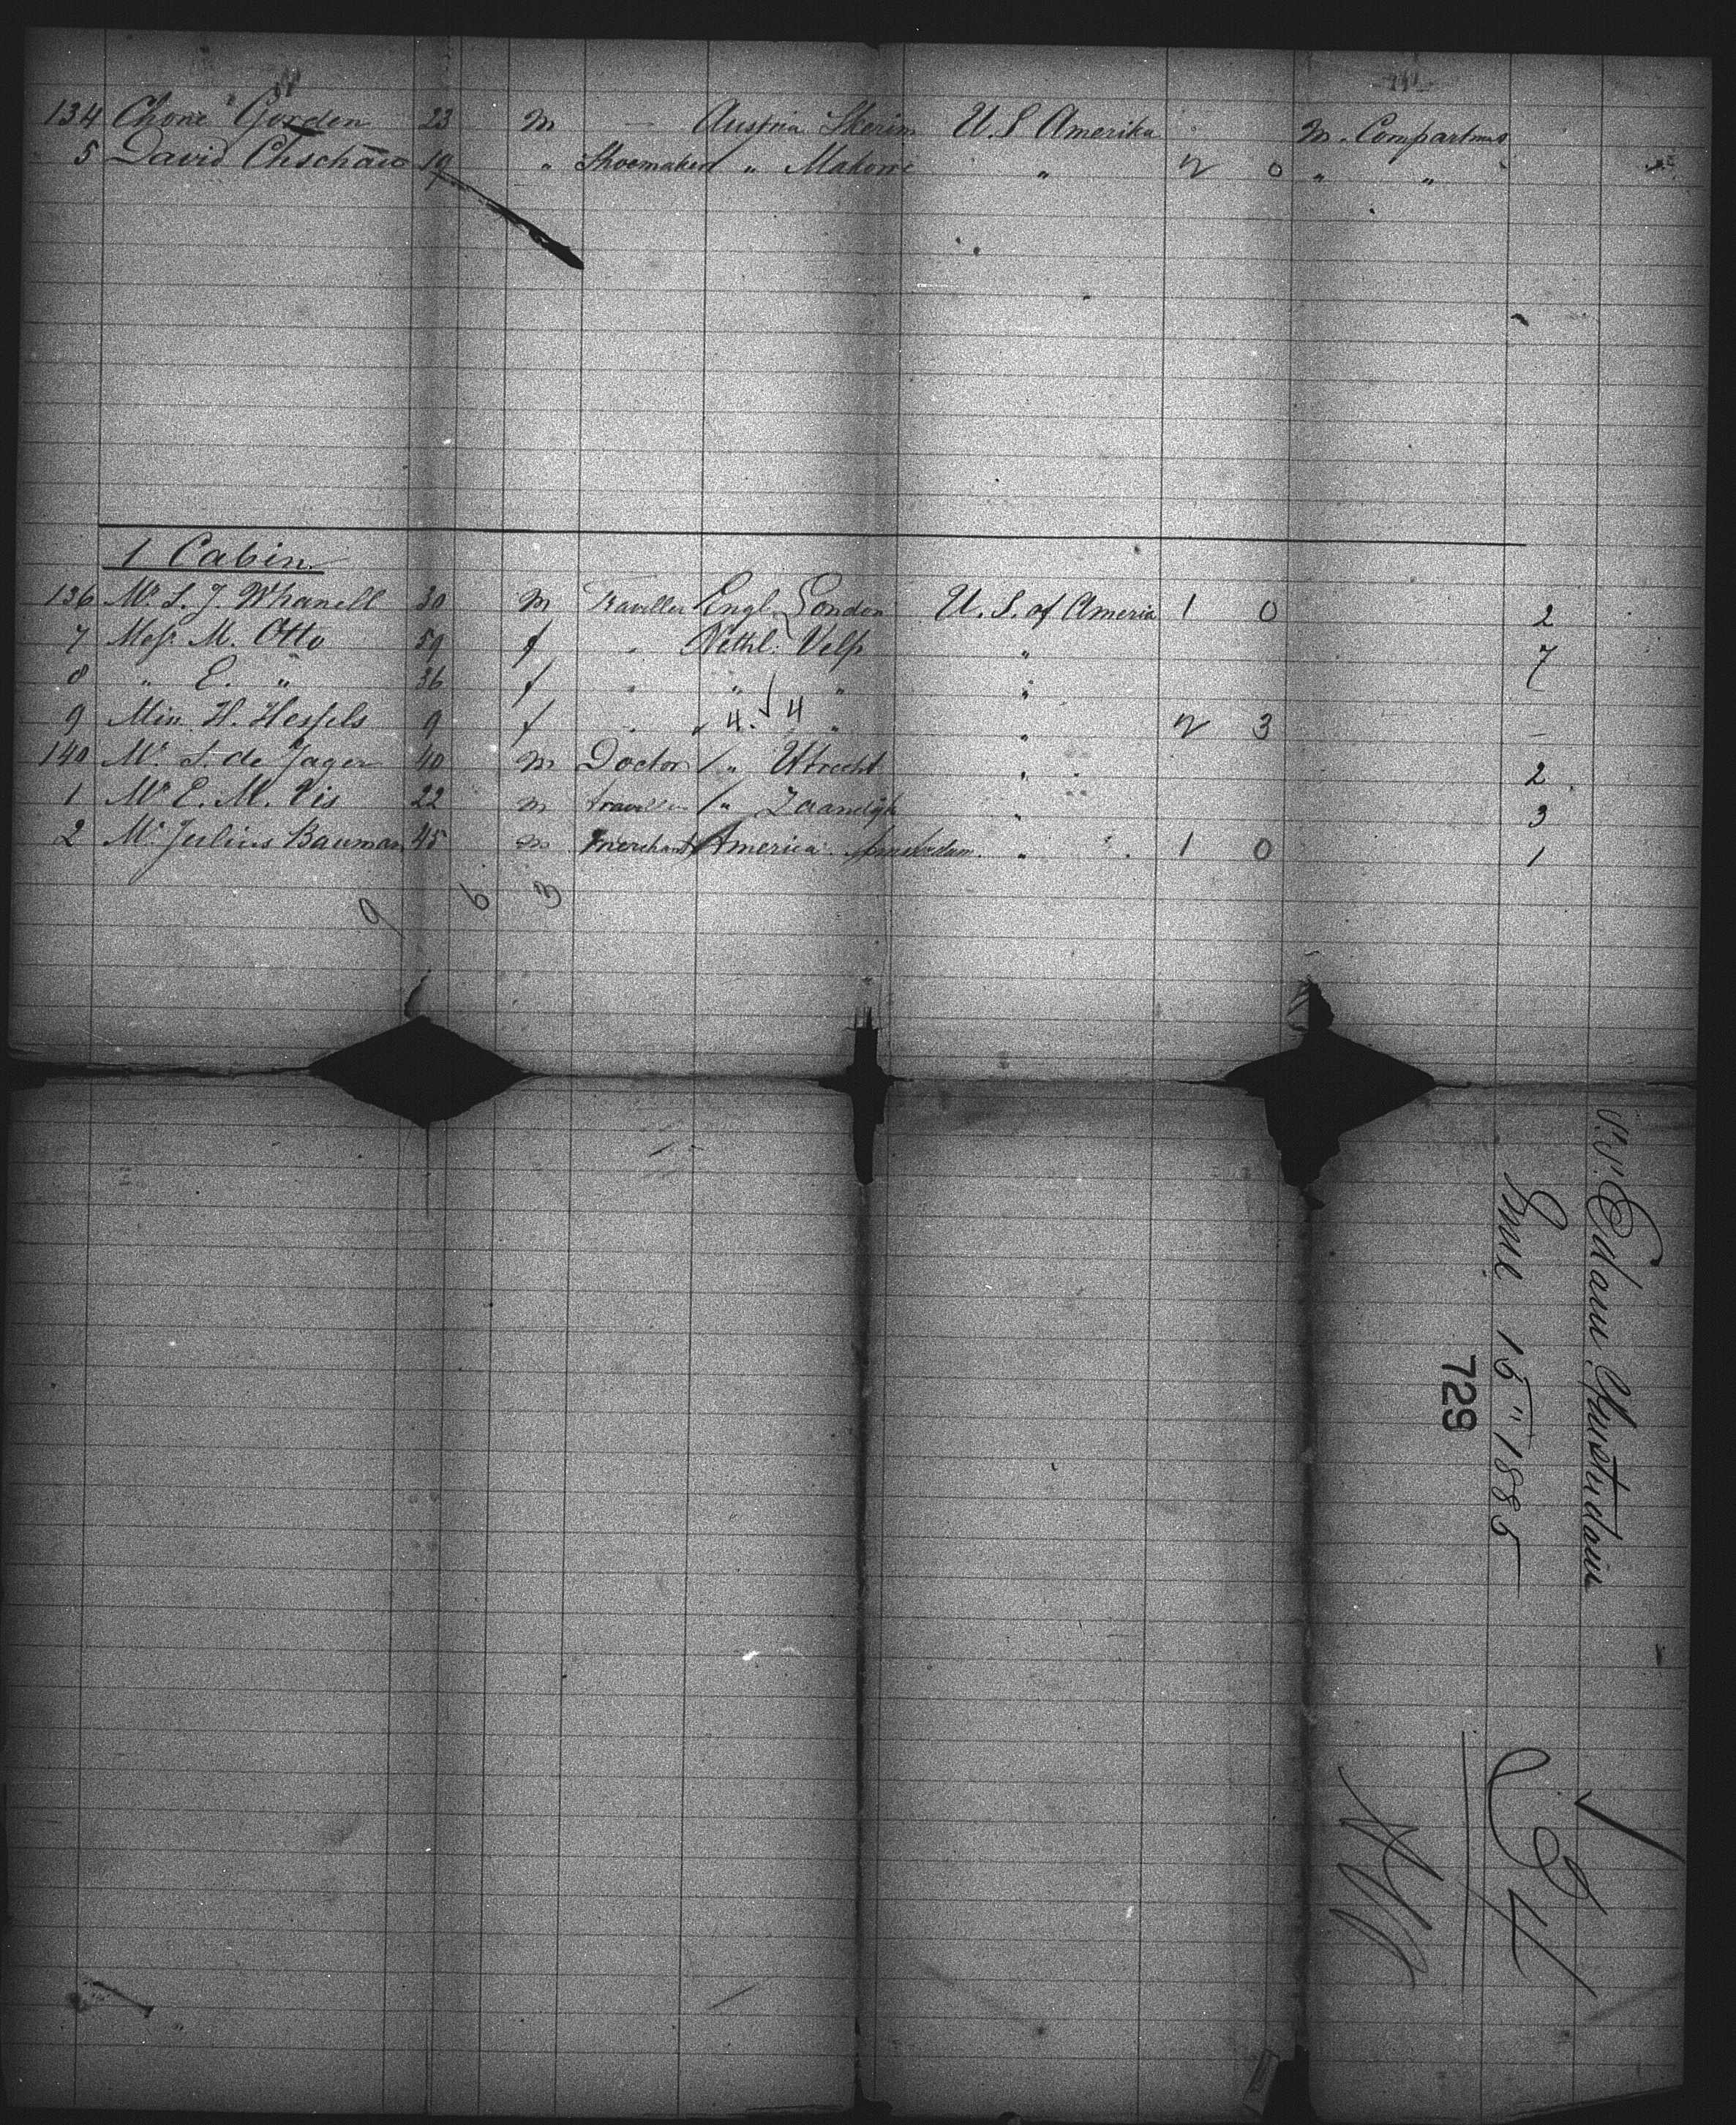 134 Chone Gorden 23 m — Austria Skerim U.S Amerika m. Compartms
5 David 19 " Shoemaker " Makowe " 2 0 " "
1 Cabin.
136 Mr. S. J. Whanell 30 m Traveller Engl. London U. S. of Ameria 1 0 2
7 Mess. M. Otto 59 f " Nethl. Velp " 7
8 " E. " 36 f " " " "
9 Miss H. Hessels 9 f " " 4. 4 " " 2 3 –
140 Mr. S. de Jager 40 m Doctor / " Utrecht " 2
1 Mr E. M. Vis 22 m traveller / " Zaandijk " 3
2 Mr. Julius Bauman 45 m merchant America Amsterdam " 1 0 1
6 6 3
S.S. Edam Amsterdam
June 15" 1885
729